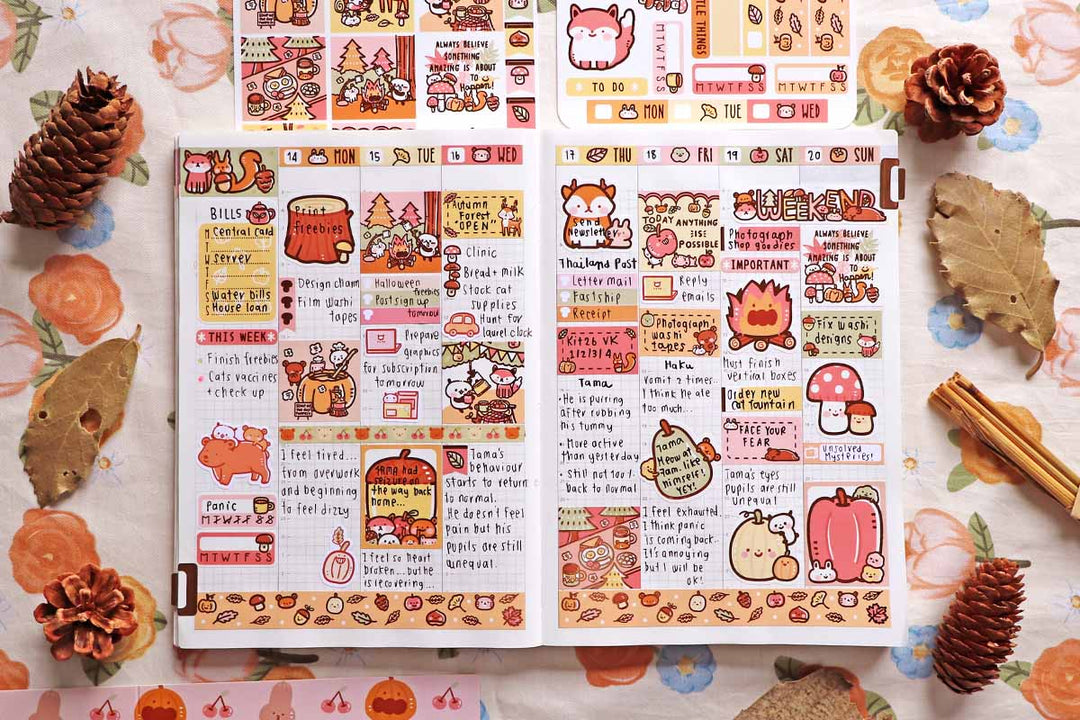 ALWAYS BELIEVE
SOMETHING
AMAZING IS ABOUT
TO
Happen!
TO DO
M T W T F S S
TLE THINGS
M T W T F S S
M T W T F S S
MON
TUE
WED
BILLS
M
T
W
T
F
S
S
Central Card
Server
Water bills
House loan
THIS WEEK
Finish freebies
Cats vaccines
+ check up
Panic
M T W T F S S
M T W T F S S
14 MON
Print
freebies
Design charm
Film washi
tapes
I feel tired...
from overwork
and beginning
to feel dizzy.
15 TUE
Halloween
freebies
Post sign up
tomorrow
Prepare
graphics
for subscription
tomorrow
TAMA had
seizure on
the way back
home...
I feel so heart
broken...but he
is recovering...
16 WED
Autumn
Forest
"OPEN"
Clinic
Bread + milk
Stock cat
supplies
Hunt for
laurel clock
Tama's
behaviour
starts to return
to normal.
He doesn't feel
pain but his
pupils are still
unequal.
17 THU
Send
Newsletter
Thailand Post
Letter mail
Fastship
Receipt
Kit 26 VK
1 | 2 | 3 | 4
Tama
• He is purring
after rubbing
his tummy
• More active
than yesterday
• Still not 100%
back to normal
18 FRI
TODAY ANYTHING
ELSE
POSSIBLE
Reply
emails
Photograph
washi
tapes
Haku
Vomit 2 times..
I think he ate
too much...
Tama
Meow at
7am. like
himself!
YEY!
I feel exhausted.
I think panic
is coming back..
It's annoying
but I will be
ok!
19 SAT
WEEKEND
Photograph
Shop goodies
IMPORTANT
Must finish
vertical boxes
Order new
Cat fountain
FACE YOUR
FEAR
Tama's eyes
pupils are still
unequal
20 SUN
ALWAYS BELIEVE
SOMETHING
AMAZING IS ABOUT
TO
Happen!
Fix washi
designs
Unsolved
Mysteries!